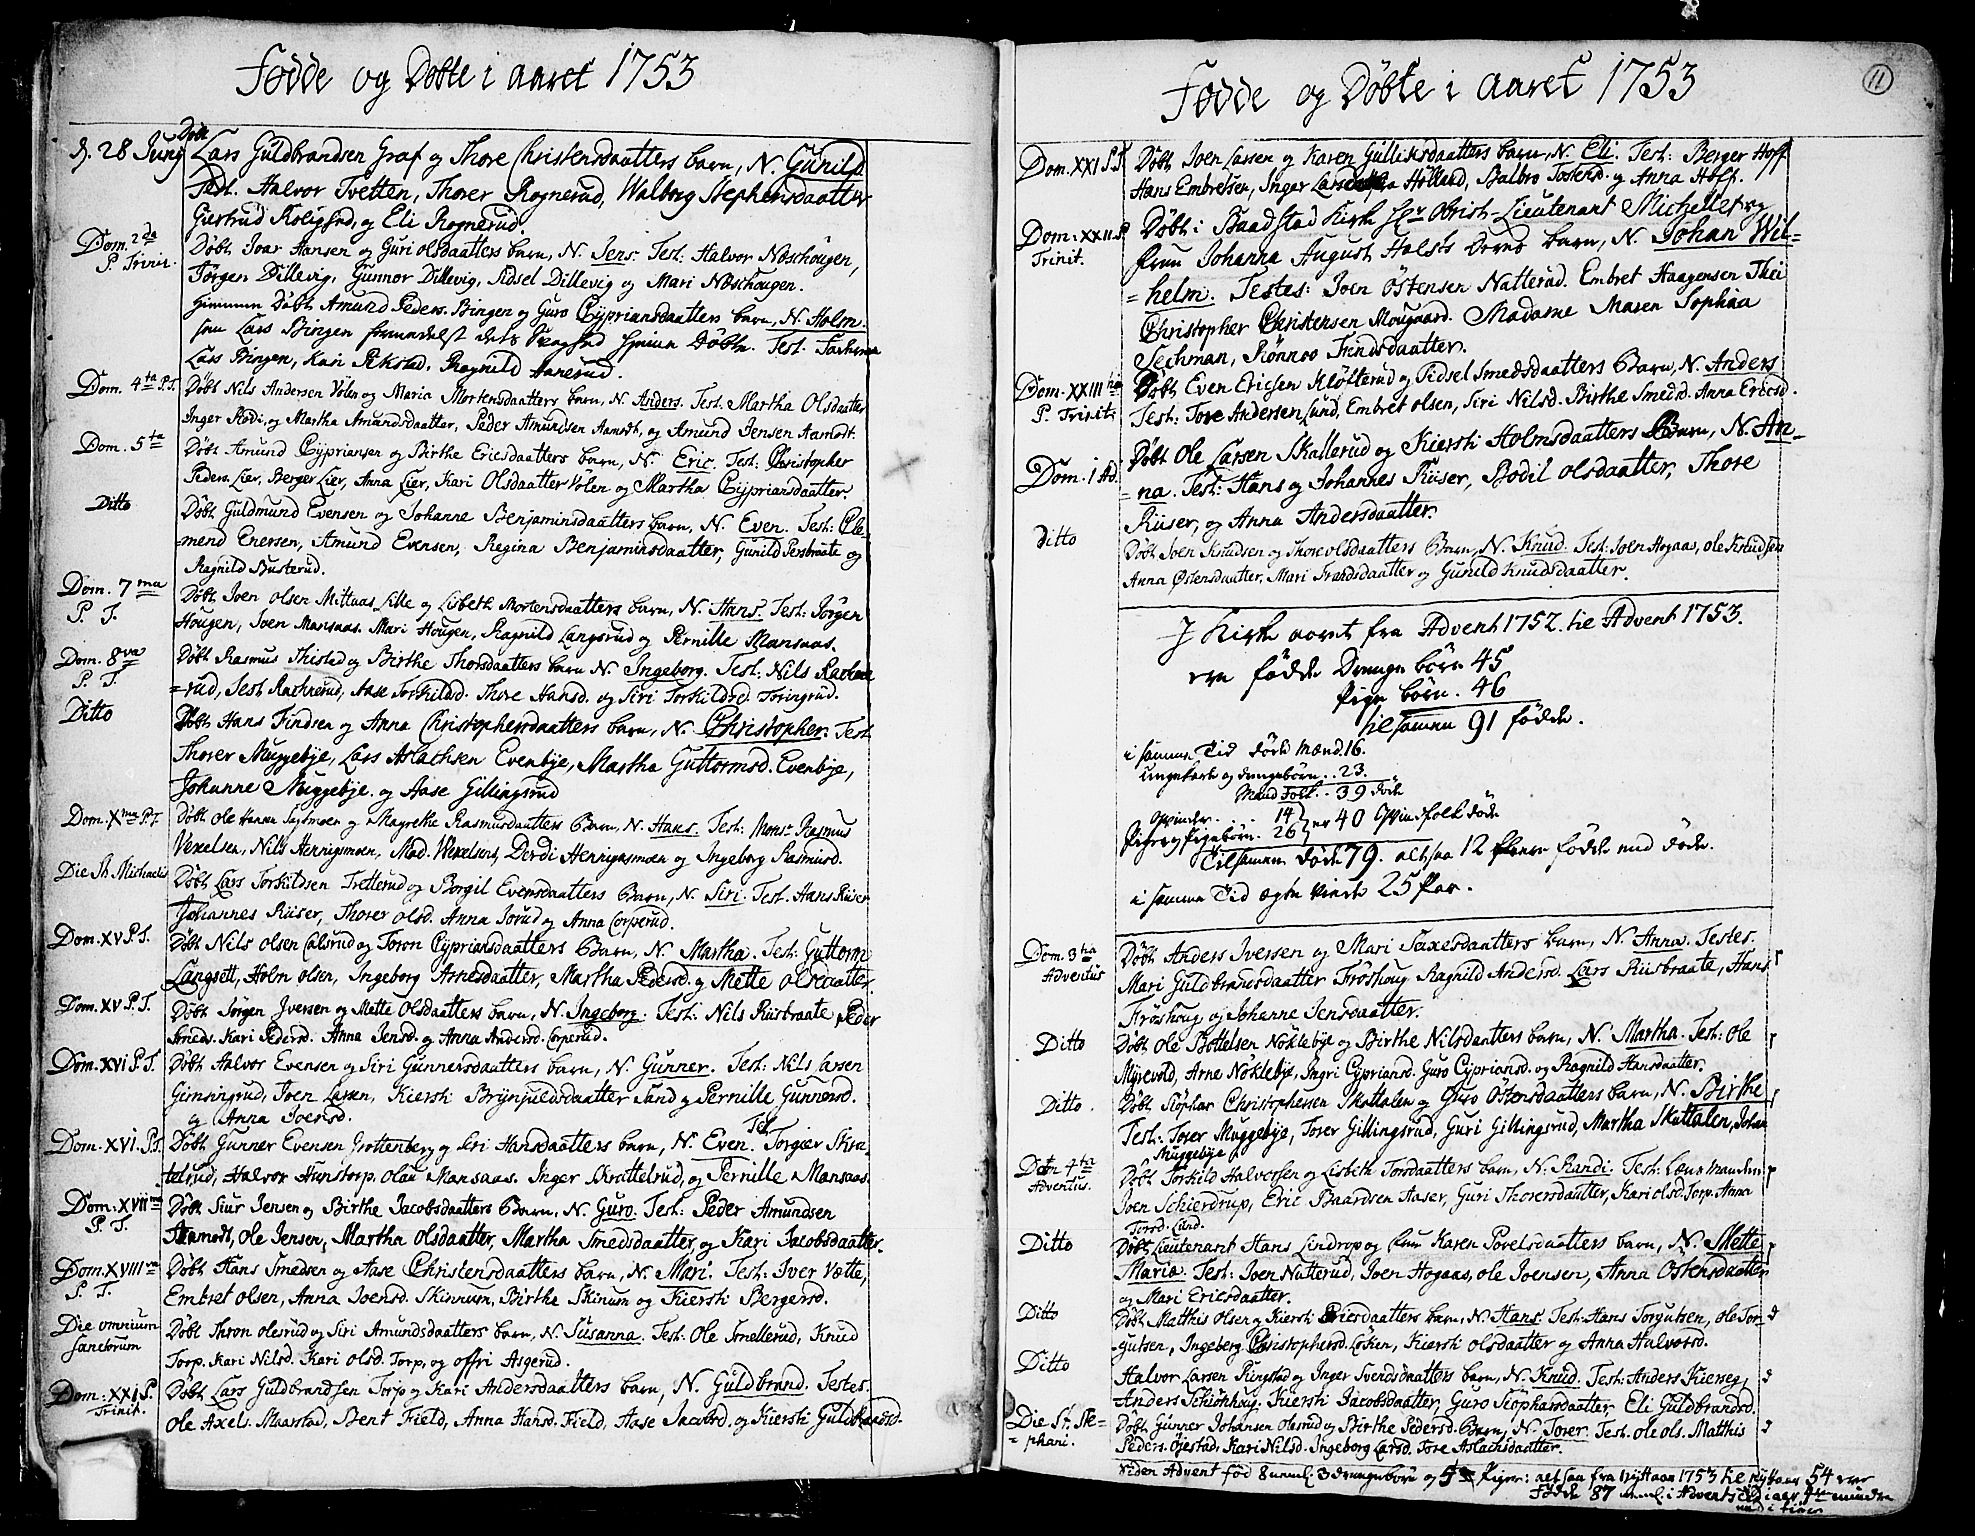 Fødde og Døbte i aaret 1753
d. 28 Junÿ Døbt Lars Guldbrandsen Graf og Thore Christensdaatters barn, N. Gunild
Test. Halvor Tvetten, Thorer Rognerud, Walborg Stephensdaatter
Giertrud Koligstad, og Eli Rognerud.
Dom. 2da P. Trinit. Døbt Ivar Hansen og Guri olsdaatters barn, N. Jens. Test: Halvor Næschougen,
Jørgen Dillevig, Gunnor Dillevig, Sidsel Dillevig og Mari Næschougen.
Hiemme Døbt Amund Peders. Bingen og Guro Cÿpriansdaatters barn, N. Holm.
som Lars Bingen formedelst dets Svaghed hiemme Døbte. Test.
Lars Bingen, Kari Rikstad, Ragnild Hanerud.
Dom. 4ta P.T. Døbt Nils Andersen Volen og Maria Mortensdaatters barn, N. Anders. Test. Martha Olsdaatter
Inger Rødi, og Martha Amundsdaatter, Peder Amundsen Aamodt, og Amund Jensen Aamodt.
Dom. 5ta Døbt Amund Cÿpriansen og Birthe Ericsdaatters barn, N. Eric. Test. Christopher
Peders. Lier, Berger Lier, Anna Lier, Kari Olsdaatter Volen og Martha Cÿpriansdaatter.
Ditto Døbt Guldmund Evensen og Johanne Benjaminsdaatters barn, N. Even. Test: Cle-
-mend Enersen, Amund Evensen, Regina Benjaminsdaatter, Gunild Persbraate og
Ragnild Busterud.
Dom. 7ma P. T. Døbt Joen olsen Mittaas Lille og Lisbeth Mortensdaatters barn, N. Hans. Test: Jørgen
Hougen, Joen Mansaas. Mari Hougen, Ragnild Langsrud og Pernille Mansaas.
Dom. 8va P. T. Døbt Rasmus Thistad og Birthe Thorsdaatters barn N. Ingeborg. Test: Nils Rackne
=rud, Jest Racknerud, Aase Torkildsd. Thore Hansd. og Siri Torkildsd. Toringrud.
Ditto Døbt Hans Findsen og Anna Christophersdaatters barn, N. Christopher. Test.
Thorer Muggebÿe, Lars Aslachsen Evenbÿe, Martha Guttormsd. Evenbÿe,
Johanne Muggebÿe. og Aase Gillingsrud
Dom. Xma P.T. Døbt ole Hansen Sagmoen og Magrethe Rasmusdaatters Barn, N. Hans. Test: Monsr. Rasmus
Vexelsen, Nils Hennigsmoen, Mad. Wexelsens, Derdi Hennigsmoen og Ingeborg Rasmusd.
Die St. Michaelis Døbt Lars Torkildsen Tretterud og Borgil Evensdaatters Barn, N. Siri. Test. Hans Riiser
Johannes Riiser, Thorer olsd. Anna Jorud og Anna Corperud.
Dom. XV P.T. Døbt Nils olsen Calsrud og Toron Cÿpriansdaatters Barn, N. Martha. Test: Guttorm
Langsett, Holm olsen, Ingeborg Arnesdaatter, Martha Pedersd. og Mette olsdaatter.
Dom. XV P.T. Døbt Jørgen Iversen og Mette Olsdaatters barn, N. Ingeborg. Test: Nils Riisbraate Peder
Smeds. Kari Pedersd. Anna Jensd. og Anna Andersd. Corperud.
Dom. XVI P.T. Døbt Halvor Evensen og Siri Gunnersdaatters barn, N. Gunner. Test: Nils Larsen
Gimsingrud, Joen Larsen, Kiersti Brÿnjuldsdaatter Sand og Pernille Gunnersd.
og Anna Joensd.
Dom. XVI. P.T. Døbt Gunner Evensen Grottenberg og Siri Hansdaatters barn, N. Even. Test Torgier Skra-
tterud, Halvor Hunstorp. olau Mansaas. Inger Skrattelrud, og Pernille Mansaas.
Dom. XVIIma P. T. Døbt Siur Jensen og Birthe Jacobsdaatters Barn, N. Guro. Test: Peder Amundsen
Aamodt, ole Jensen, Martha Olsdaatter, Martha Smedsdaatter, og Kari Jacobsdaatter.
Dom. XVIIIva P. T. Døbt Hans Smedsen og Aase Christensdaatters barn, N. Mari. Test: Iver Vætte,
Embret olsen, Anna Joensd. Skinnum, Birthe Skinum og Kiersti Bergersd.
Die omnium sanctorum Døbt Thron olesrud og Siri Amundsdaatters barn, N. Susanna. Test. Ole Smellerud, Knud
Torp. Kari Nilsd. Kari olsd. Torp, og offri Asgerud.
Dom: XXI P. Trinit. Døbt Lars Guldbrandsen Torp og Kari Andersdaatters barn, N. Guldbrand. Testes.
Ole Axels. Maarstad, Bent Field, Anna Hansd. Field, Aase Jacobsd. og Kiersti Guldbrandsd.
11
Fødde og Døbte i aaret 1753
Dom. XXI P.T. Døbt Joen Larsen og Karen Gulliksdaatters barn, N. Eli. Test: Berger Hoff
Hans Embretsen, Inger Holland, Balbro og Anna Hoff.
Dom: XXII. P. Trinit. Døbt i Baadstad Kirke Hr Obrist-Lieutenant Michelet og
frue Johanna August Halsts Deres barn, N. Johan Wil=
=helm. Testes: Joen Østensen Natterud. Embret Haagensen Thei
Christopher Christensen Mougaard. Madame Maren Sophia
Sechman, Rønnov Trondsdaatter.
Dom. XXIIItia P. Trinit: Døbt Even Ericsen Kløfterud og Sidsel Smedsdaatters Barn, N. Anders
Test: Tore Andersen Lund, Embret olsen, Siri Nilsd. Birthe Smedsd. Anna Ericsd.
Dom. 1 Ad. Døbt Ole Larsen Skallerud og Kiersti Holmsdaatters Barn, N. An-
=na. Test: Hans og Johannes Riiser, Bodil olsdaatter, Thore
Riiser, og Anna Andersdaatter.
Ditto Døbt Joen Knudsen og Thore olsdaatters Barn, N. Knud. Test: Joen Hogaas, ole Knudsen
Anna Østensdaatter, Mari Trondsdaatter og Gunild Knudsdaatter.
I Kirke aaret fra Advent 1752. til Advent 1753.
ere fødde Drenge børn 45
Pige børn. 46
tilsamen 91 fødde.
i samme Tid døde Mænd 16.
ungekarle og drengebørn. . 23.
Mand folk. . 39 døde
Qvinder. . . . 14
Piger og Pigebørn. 26 er 40 Qvindfolk døde
Tilsamen døde 79. altsaa 12 flere fødde end døde.
i samme Tid ægte viede 25 Par.
Dom. 3tia Adventus Døbt Anders Iversen og Mari Saxesdaatters barn, N. Anna. Testes.
Mari Guldbrandsdaatter Frøshoug Ragnild Andersd. Lars Riisbraate, Hans
Frøshoug og Johanne Jensdaatter.
Ditto Døbt Ole Bottelsen Nøklebÿe og Birthe Nilsdaatters barn, N. Martha. Test: Ole
Mÿrevold, Arne Nøklebÿe, Ingri Cÿpriansd. Guro Cÿpriansd. og Ragnild Hansdaatter.
Ditto. Døbt Stophar Christophersen Skattalen og Guro Østensdaatters barn, N. Birthe
Test: Torer Muggebÿe, Torer Gillingsrud, Guri Gillingsrud, Martha Skattalen, Johan
Muggebÿe
Dom 4ta Adventus. Døbt Torkild Halvorsen og Lisbeth Torsdaatters barn, N. Randi. Test:
Joen Schierdrup, Eric Baardsen Aaser, Guri Thorersdaatter, Kari olsd. Torp. Anna
Torsd. Lund.
Ditto Døbt Lieutenant Hans Lindrop og frue Karen Povelsdaatters barn, N. Mette
Maria. Test: Joen Natterud, Joen Hogaas, ole Joensen, Anna Ostensdaatter
og Mari Ericsdaatter.
Ditto Døbt Matthis Olsen og Kiersti Ericsdaatters barn, N. Hans. Test: Hans Torgutsen, ole Tor-
-gutsen, Ingeborg Christophersd. Løken, Kiersti olsdaatter og Anna Halvorsd.
Ditto Halvor Larsen Ringstad og Inger Svendsdaatters barn, N. Knud. Test: Anders Kiereg,
Anders Schiønhoug. Kiersti Jacobsdaatter, Guro Stophersdaatter Eli Guldbrandsd.
Die St. Ste=phani. Døbt Gunner Johansen olesrud og Birthe Pedersd. Barn, N. Torer. Test. ole ols. Matthis
Peders. Øjestad, Kari Nilsd. Ingeborg Larsd. Tore Aslachsdaatter.
Siden Advent fød 8 nemL. 3 drengebørn og 5 Piger: altsaa fra NytAar 1753 til Nytaar 54 ere
Fødde 87